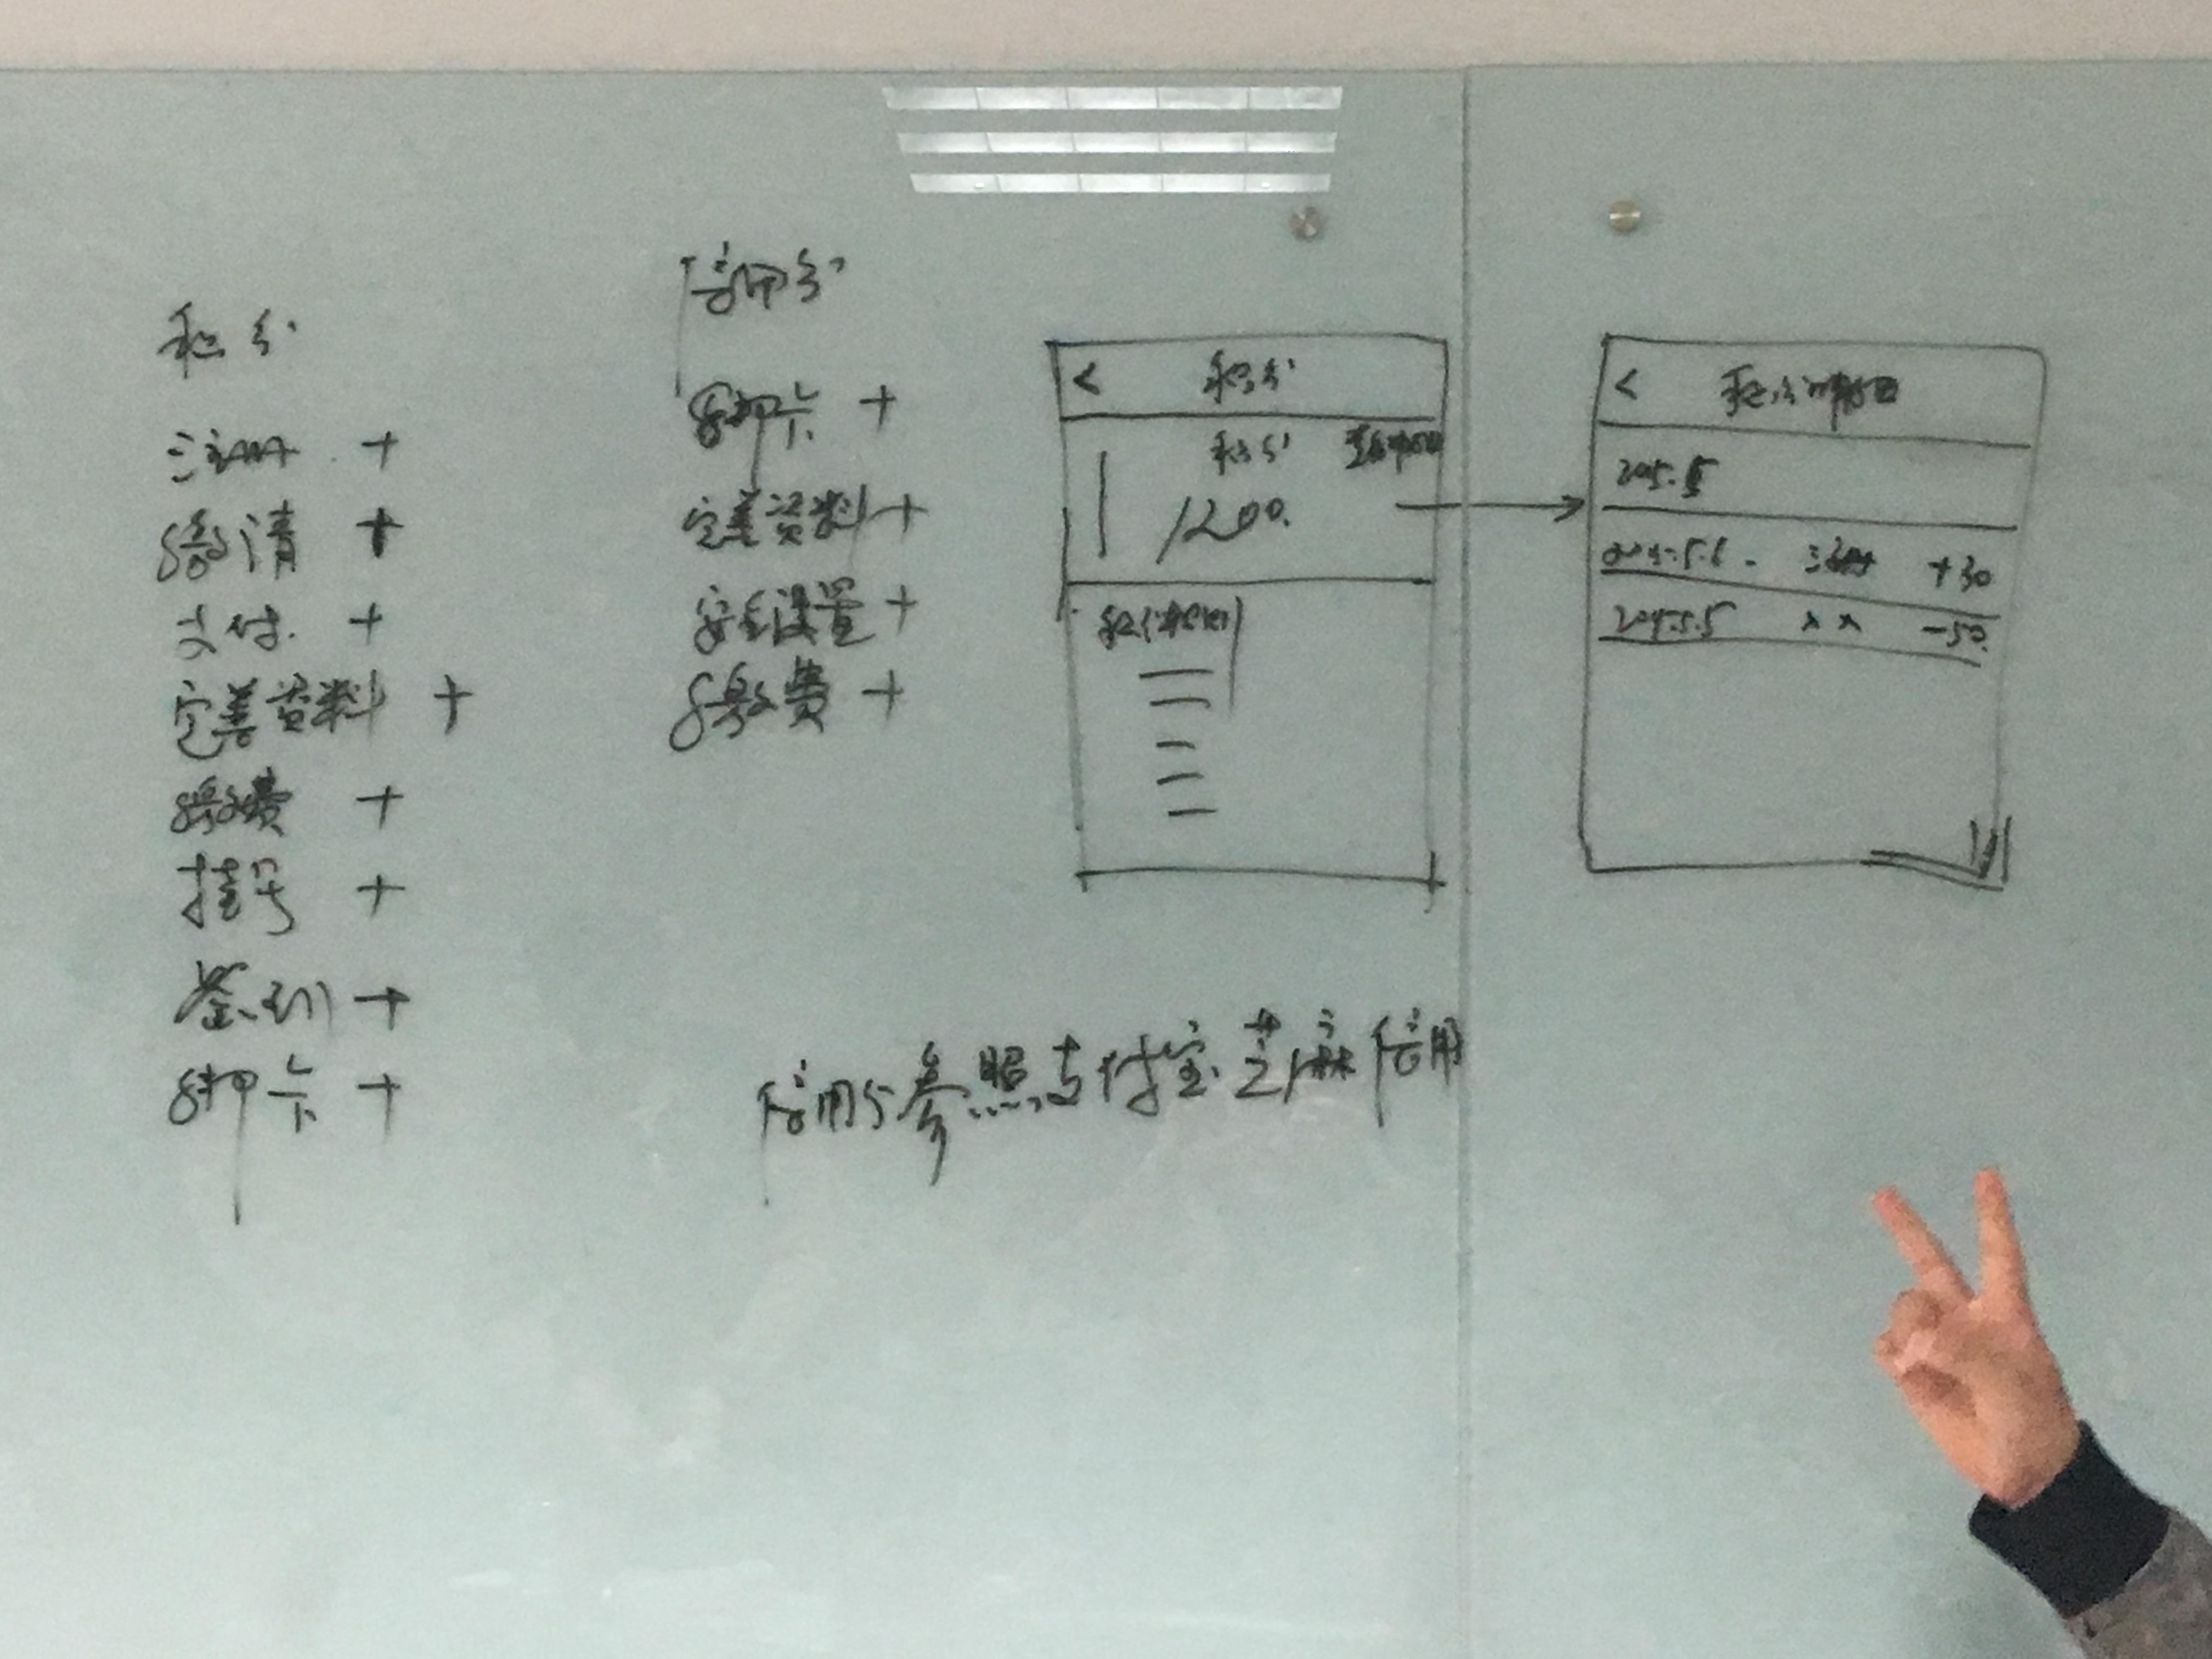 积分
注册 +
邀请 +
支付 +
完善资料 +
缴费 +
挂号 +
签到 +
绑卡 +
信用分
绑卡 +
完善资料 +
安全设置 +
缴费 +
< 积分
积分
1200
积分规则
< 积分明细
2015.5
2015.5.6 注册 +30
2015.5.5 x x -50
信用分参照支付宝芝麻信用